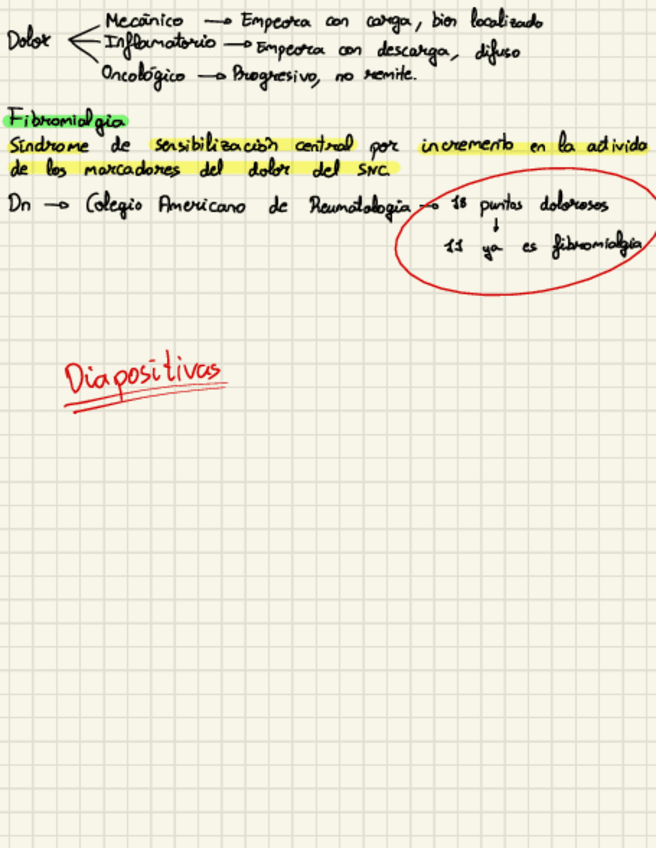 Dolor
Mecánico → Empeora con carga, bien localizado
Inflamatorio → Empeora con descarga, difuso
Oncológico → Progresivo, no remite.
Fibromialgia
Síndrome de sensibilización central por incremento en la activida
de los marcadores del dolor del SNC.
Dn → Colegio Americano de Reumatología → 18 puntos dolorosos
↓
11 ya es fibromialgia
Diapositivas